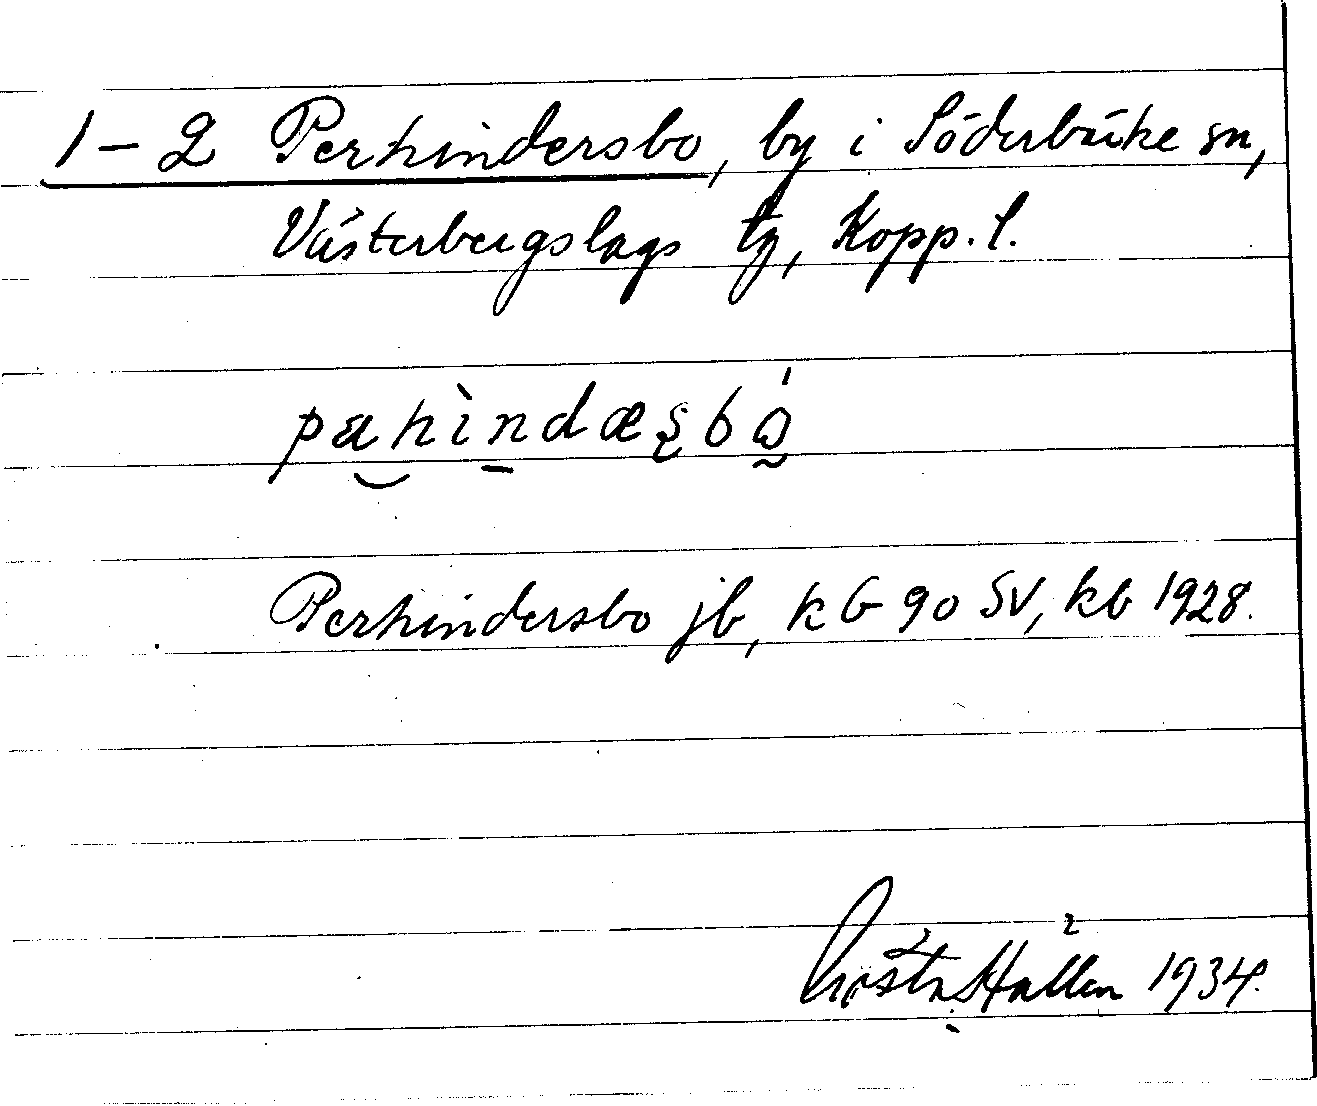 1–2 Perhindersbo, by i Söderbärke sn,
Västerbergslags tg, Kopp. l.
pahìndæsbó
Perhindersbo jb, kG 90 SV, kb 1928.
Gösta Hallén 1934.